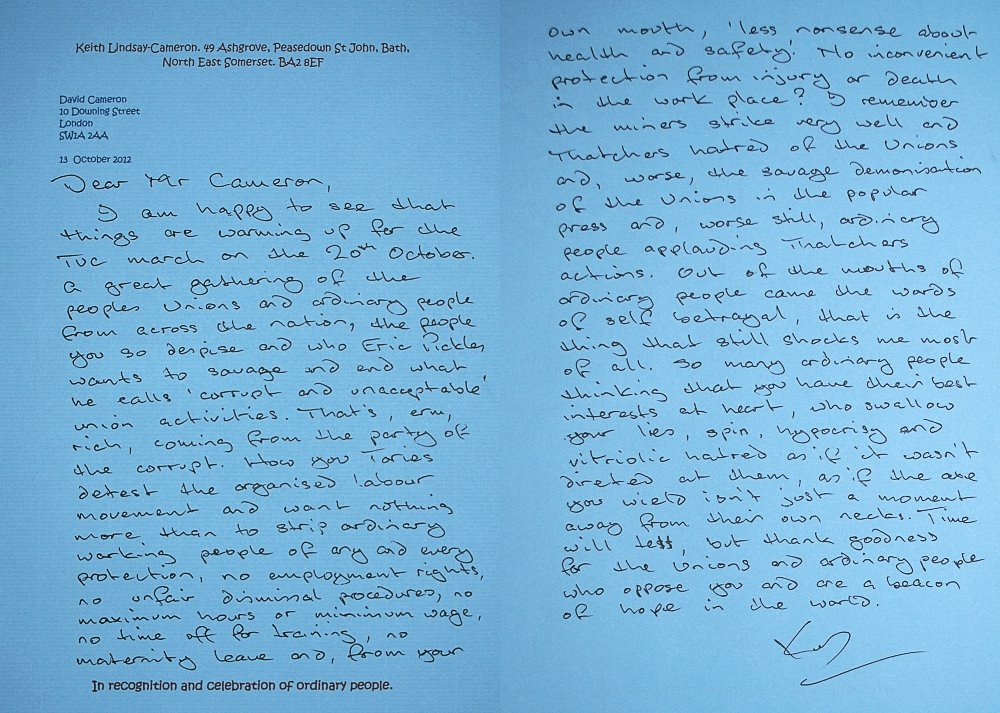 Keith Lindsay-Cameron. 49 Ashgrove, Peasedown St John, Bath,
North East Somerset. BA2 8EF
David Cameron
10 Downing Street
London
SW1A 2AA
13 October 2012
Dear Mr Cameron,
I am happy to see that
things are warming up for the
TUC march on the 20th October.
A great gathering of the
peoples Unions and ordinary people
from across the nation, the people
you so despise and who Eric Pickles
wants to savage and end what
he calls 'corrupt and unacceptable'
union activities. That's, erm,
rich, coming from the party of
the corrupt. How you Tories
detest the organised labour
movement and want nothing
more than to strip ordinary
working people of any and every
protection, no employment rights,
no unfair dismissal procedures, no
maximum hours or minimum wage,
no time off for training, no
maternity leave and, from your
In recognition and celebration of ordinary people.
own mouth, 'less nonsense about
health and safety.' No inconvenient
protection from injury or death
in the work place? I remember
the miners strike very well and
Thatchers hatred of the Unions
and, worse, the savage demonisation
of the Unions in the popular
press and, worse still, ordinary
people applauding Thatchers
actions. Out of the mouths of
ordinary people came the words
of self betrayal, that is the
thing that still shocks me most
of all. So many ordinary people
thinking that you have their best
interests at heart, who swallow
your lies, spin, hypocrisy and
vitriolic hatred as if it wasn't
direted at them, as if the axe
you wield isn't just a moment
away from their own necks. Time
will tell, but thank goodness
for the Unions and ordinary people
who oppose you and are a beacon
of hope in the world.